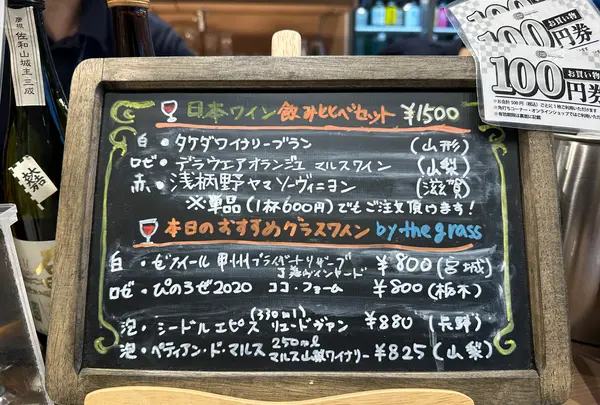 彦根
佐和山城主三成
100
100
お買い物
円券
お買い物
100円券
※お会計500円(税込)ごとに1枚ご利用いただけます
日本ワイン 飲みくらべセット ¥1500
白・タケダワイナリーブラン (山形)
ロゼ・デラウエアオランジュ マルスワイン (山梨)
赤・浅柄野ヤマソーヴィニヨン (滋賀)
※単品(1杯600円)でもご注文頂けます!
本日のおすすめグラスワイン by the grass
白・ゼフィール 甲州プライベートリザーブ ¥800(宮城)
ロゼ・ぴのろぜ2020 ココ・ファーム ¥800(栃木)
(330ml)
泡・シードルエピス リュードヴァン ¥880 (長野)
250ml
泡・ペティアン・ド・マルス マルス山梨ワイナリー ¥825(山梨)